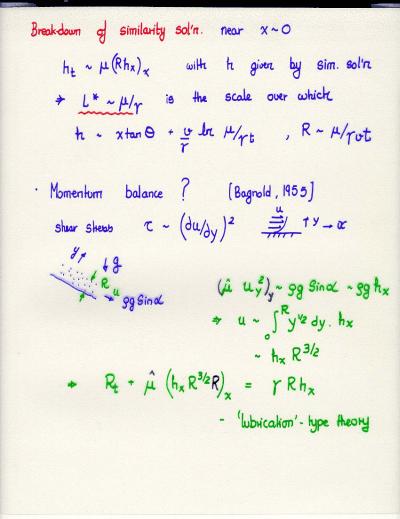 Breakdown of similarity sol'n. near x ~ 0
h_t ~ μ(Rh_x)_x with h given by sim. sol'n
⇒ L* ~ μ/γ is the scale over which
h ~ x tan Θ + v/γ ln μ/γt , R ~ μ/γvt
· Momentum balance ? [Bagnold, 1955]
shear stress τ ~ (du/dy)² u ↑y → x
y ↓g
R u ρg Sinα
(μ̂ u_y²)_y ~ ρg Sinα ~ ρg h_x
⇒ u ~ ∫₀^R y^{1/2} dy. h_x
~ h_x R^{3/2}
⇒ R_t + μ̂ (h_x R^{3/2} R)_x = γ R h_x
- 'lubrication'-type theory